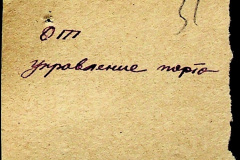 31
От
управление порта